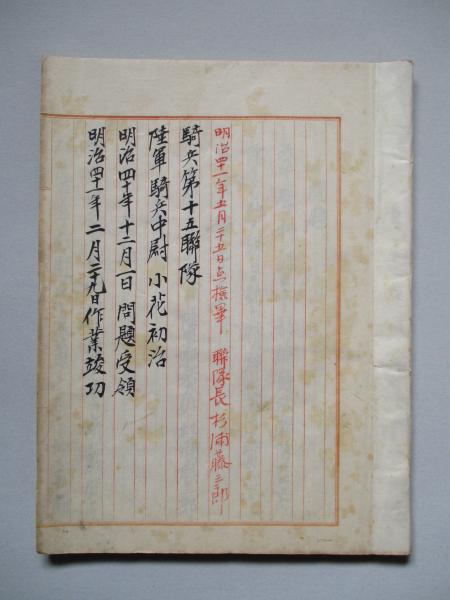 明治四十一年五月二十五日点検畢 聯隊長 杉浦藤三郎
騎兵第十五聯隊
陸軍騎兵中尉 小花初治
明治四十年十二月一日 問題受領
明治四十一年 二月二十九日 作業竣功